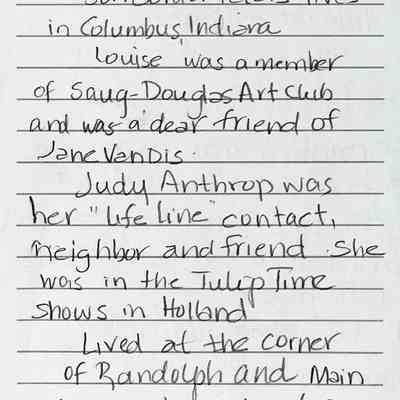 in Columbus, Indiana
Louise was a member
of Saug-Douglas Art Club
and was a dear friend of
Jane VanDis.
Judy Anthrop was
her "life line" contact,
neighbor and friend. She
was in the Tulip Time
Shows in Holland
Lived at the corner
of Randolph and Main